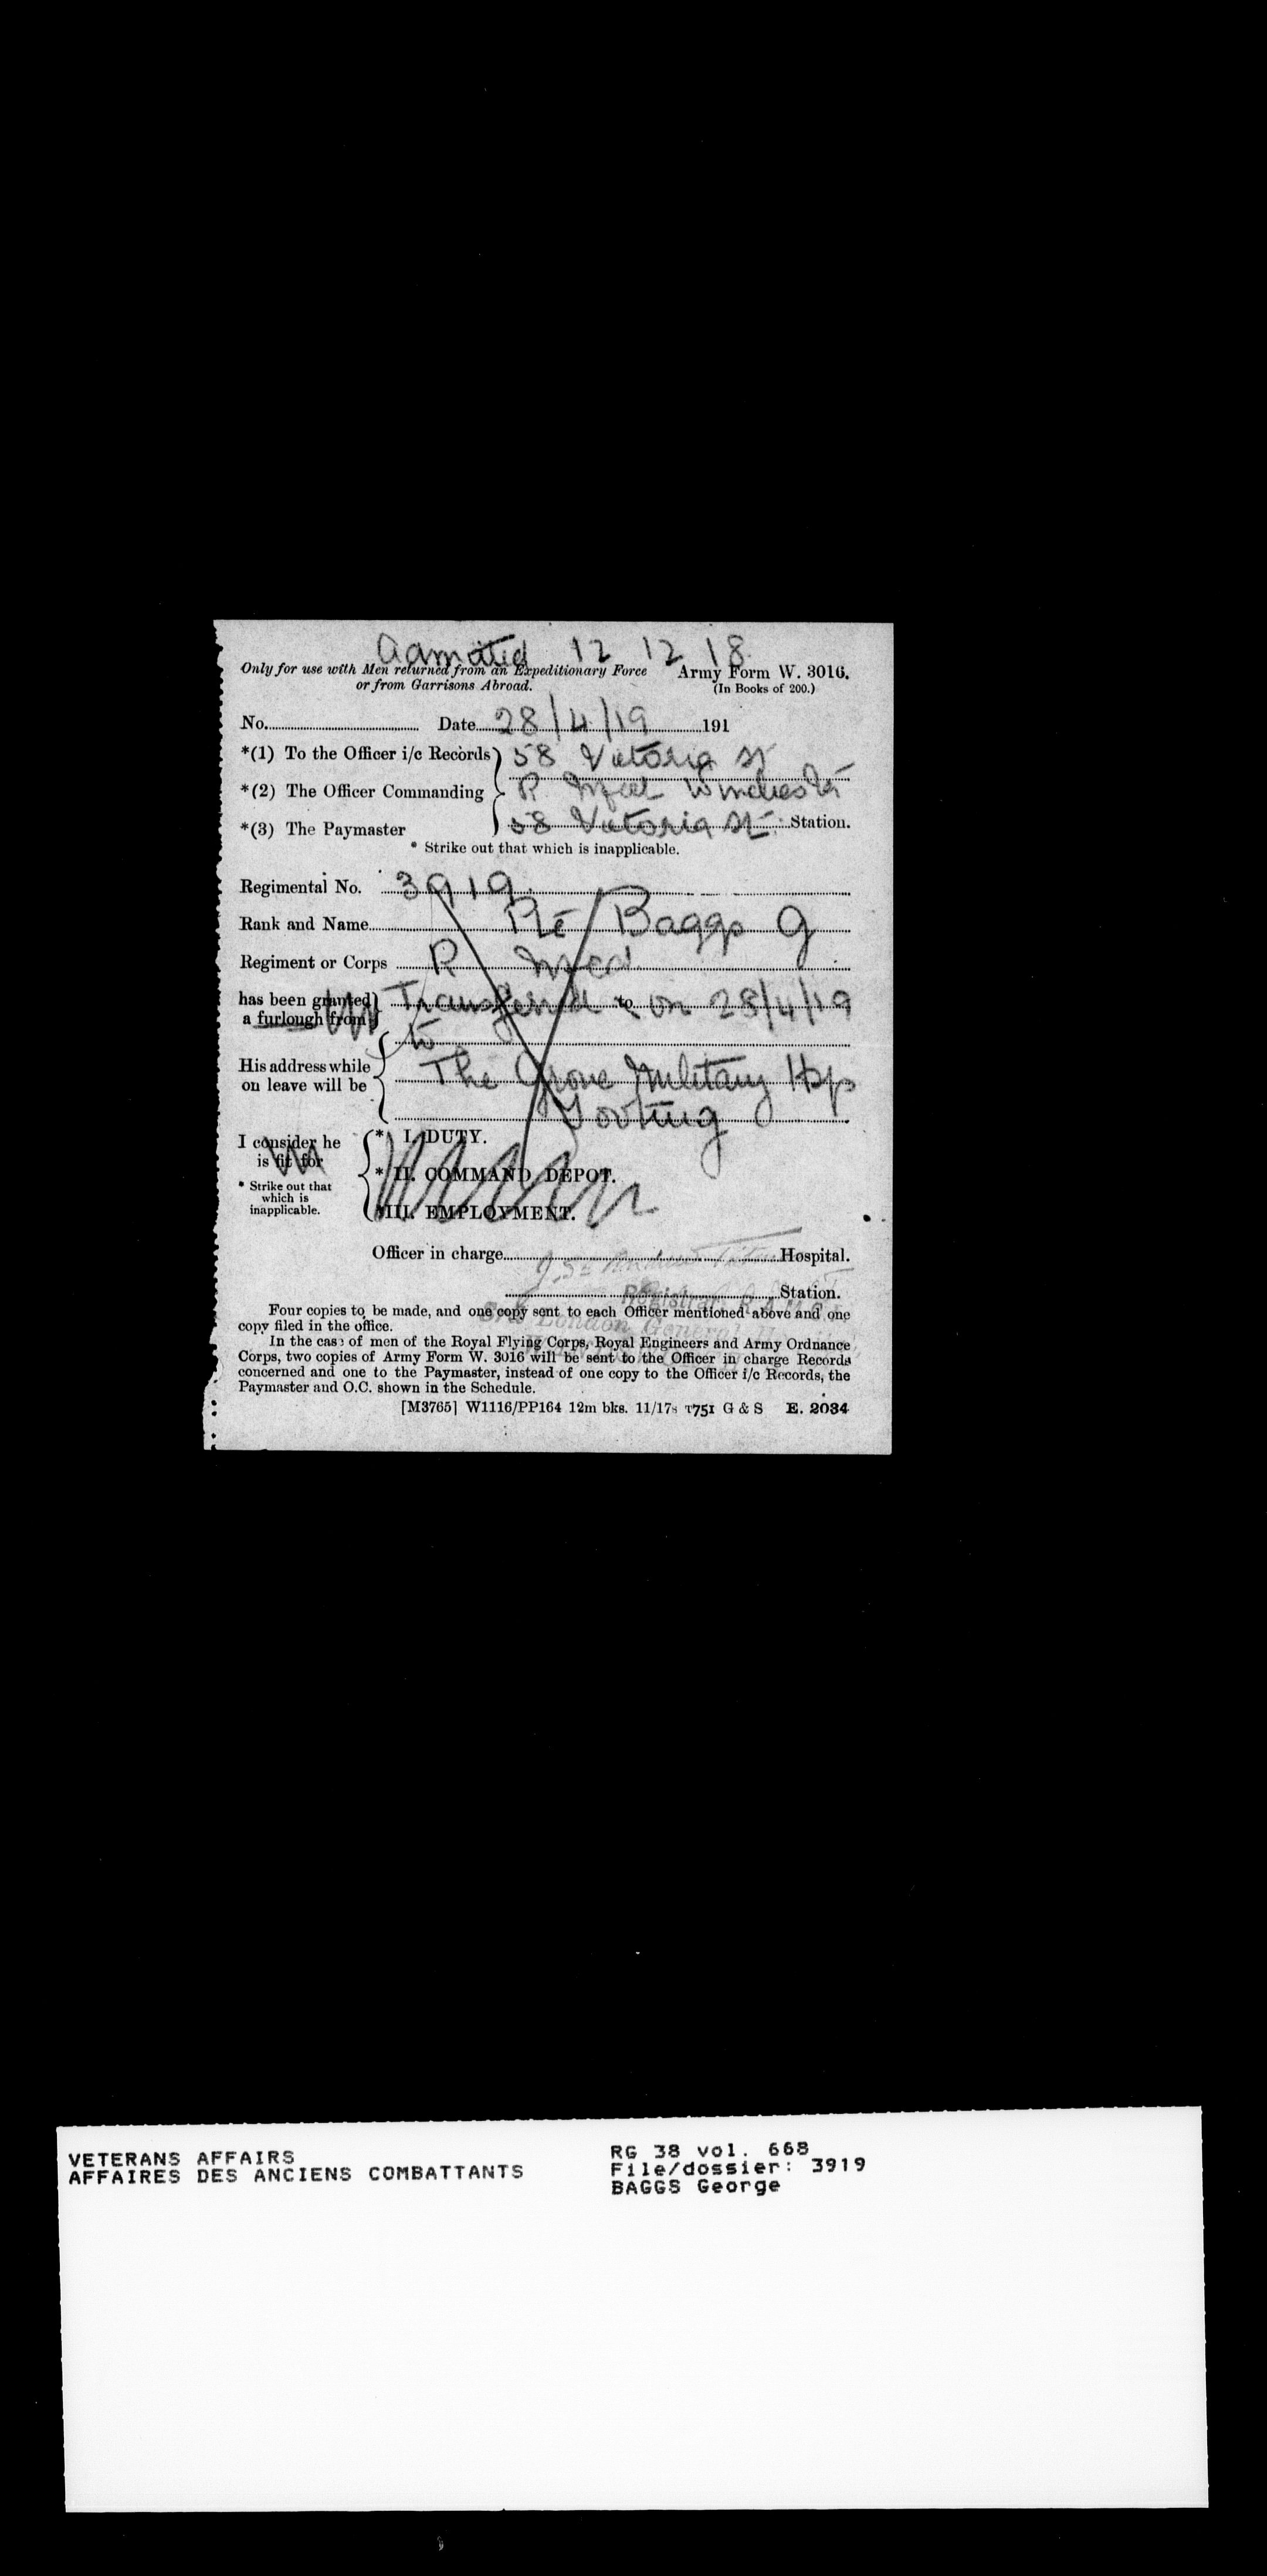 Admitted 12 12 18
Only for use with Men returned from an Expeditionary Force
or from Garrisons Abroad.
Army Form W. 3016.
(In Books of 200.)
No. Date 28/4/19 191
*(1) To the Officer i/c Records 58 Victoria St
*(2) The Officer Commanding R Nfld Winchester
*(3) The Paymaster 58 Victoria St Station.
* Strike out that which is inapplicable.
Regimental No. 3919
Rank and Name Pte Baggs G
Regiment or Corps R Nfld
has been granted
a furlough from Transferred to on 28/4/19
to
His address while
on leave will be The Grove Military Hosp
Tooting
I consider he
is fit for
* Strike out that
which is
inapplicable.
* I. DUTY.
* II. COMMAND DEPOT.
* III. EMPLOYMENT.
Officer in charge Hospital.
Registrar R.A.M.C.T. Station.
3rd London General Hospital
Four copies to be made, and one copy sent to each Officer mentioned above and one
copy filed in the office.
In the case of men of the Royal Flying Corps, Royal Engineers and Army Ordnance
Corps, two copies of Army Form W. 3016 will be sent to the Officer in charge Records
concerned and one to the Paymaster, instead of one copy to the Officer i/c Records, the
Paymaster and O.C. shown in the Schedule.
[M3765] W1116/PP164 12m bks. 11/17s 1751 G & S E. 2034
VETERANS AFFAIRS
AFFAIRES DES ANCIENS COMBATTANTS
RG 38 vol. 668
File/dossier: 3919
BAGGS George